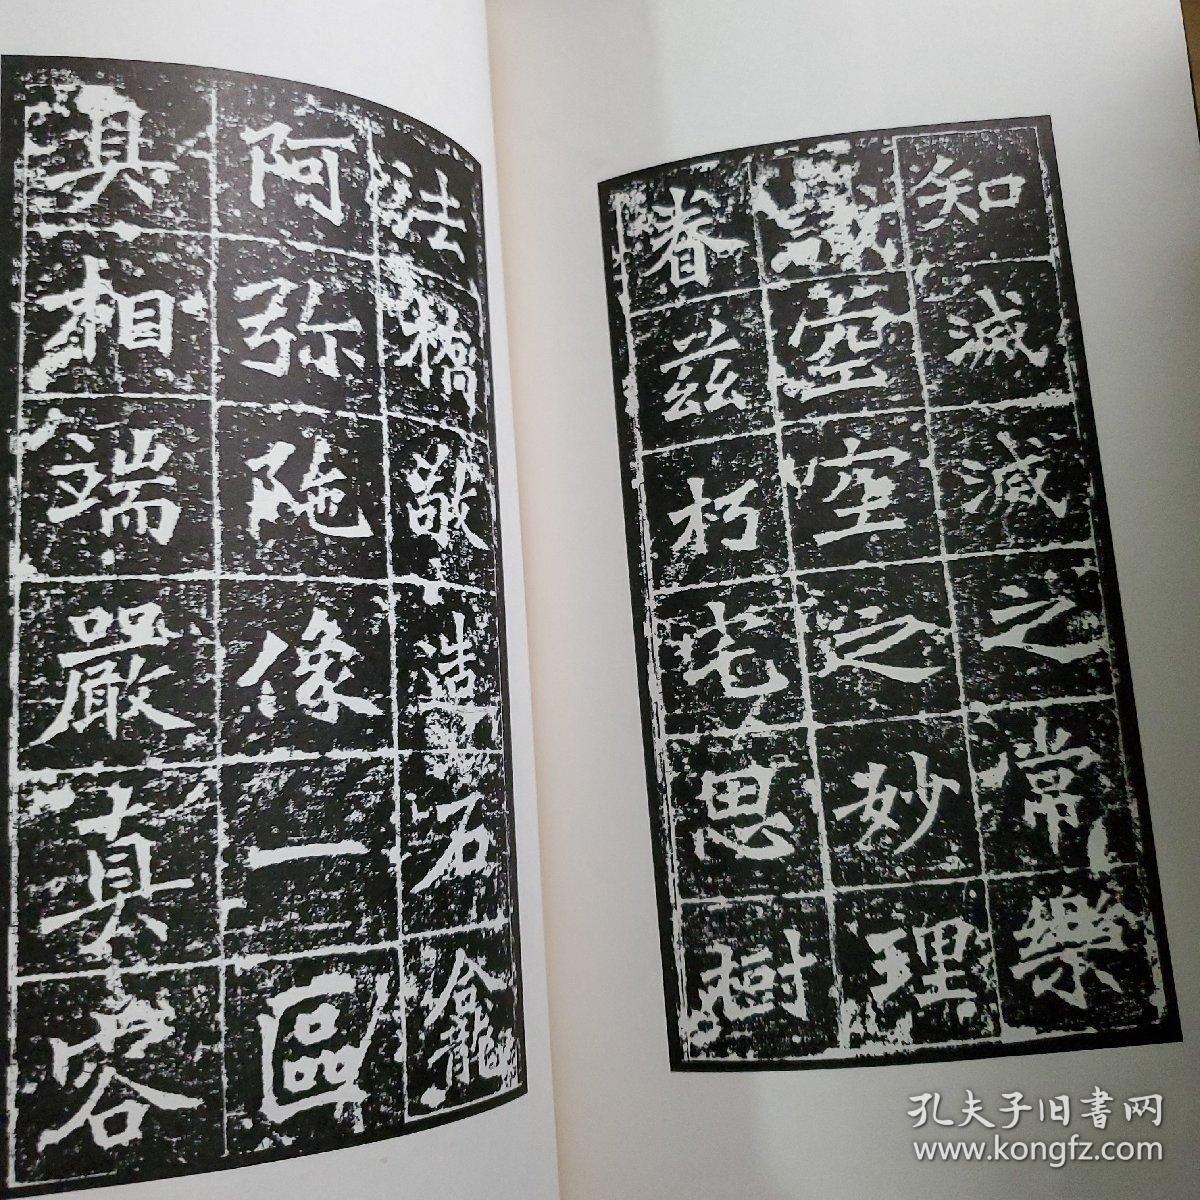 知滅滅之常樂
識空空之妙理
眷茲朽宅思樹
法橋敬造石龕
阿弥陁像一區
具相端嚴真容
孔夫子旧書网
www.kongfz.com